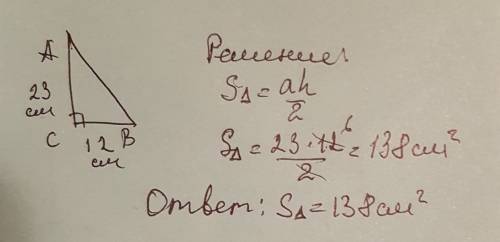 A
23
см
C
12
см
B
Решение:
S△ = ah/2
S△ = 23·12/2 6 = 138 см²
Ответ: S△ = 138 см²